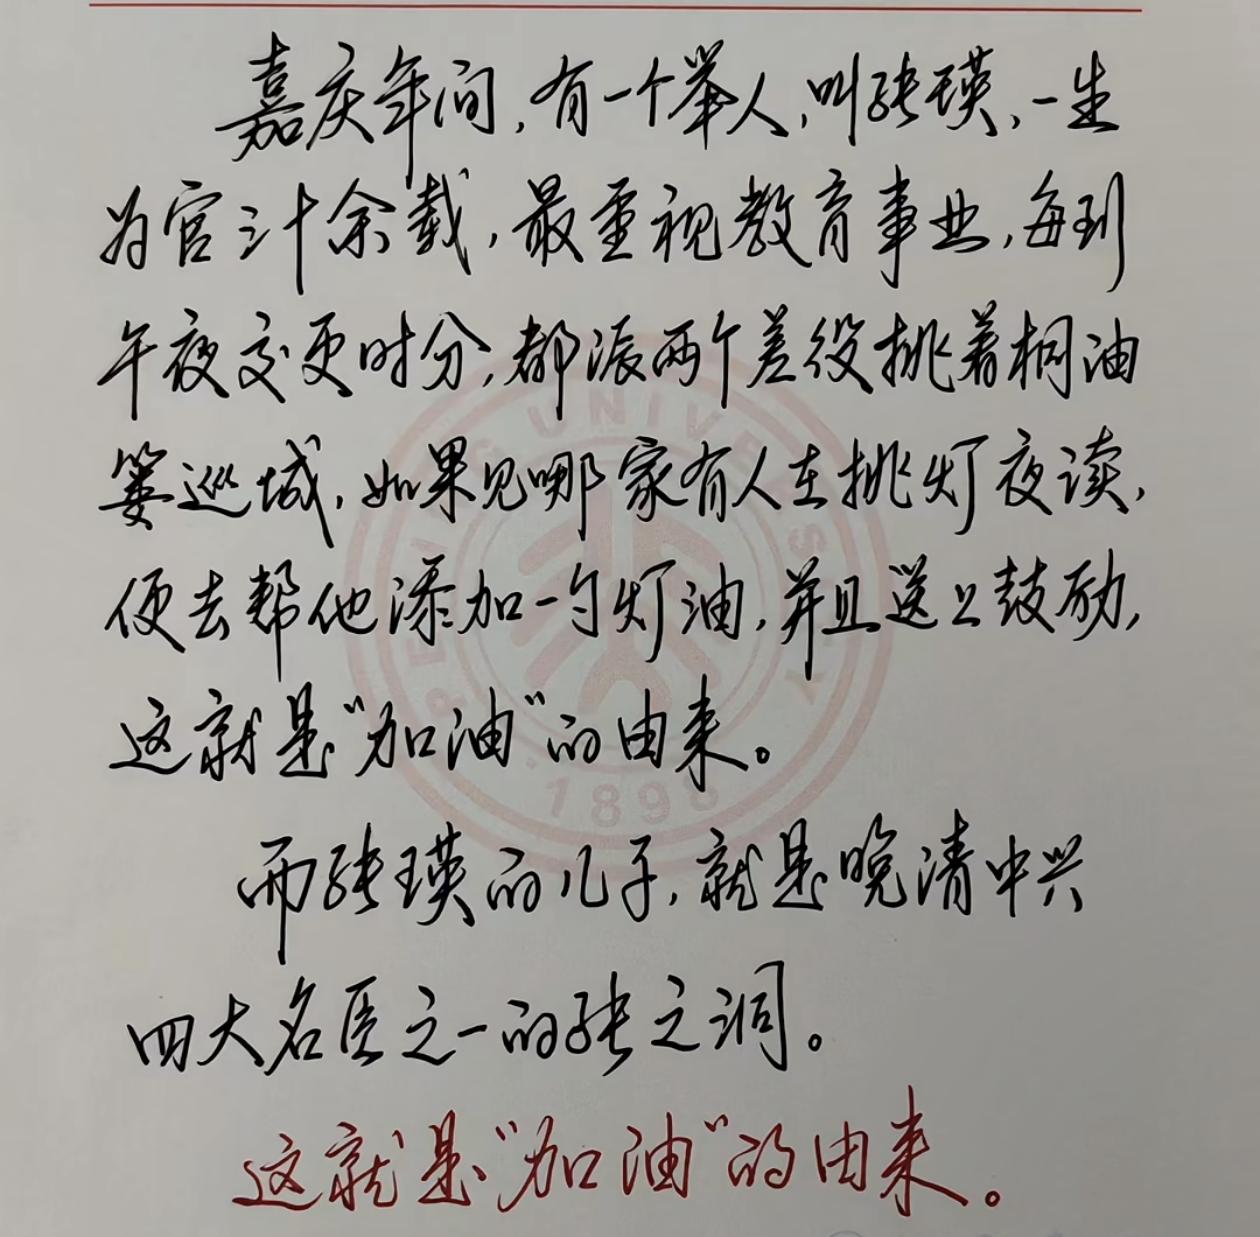 嘉庆年间,有一个举人,叫张瑛,一生
为官三十余载,最重视教育事业,每到
午夜交更时分,都派两个差役挑着桐油
篓巡城,如果见哪家有人在挑灯夜读,
便去帮他添加一勺灯油,并且送上鼓励,
这就是“加油”的由来。
而张瑛的儿子,就是晚清中兴
四大名臣之一的张之洞。
这就是“加油”的由来。
PEKING UNIVERSITY
1898